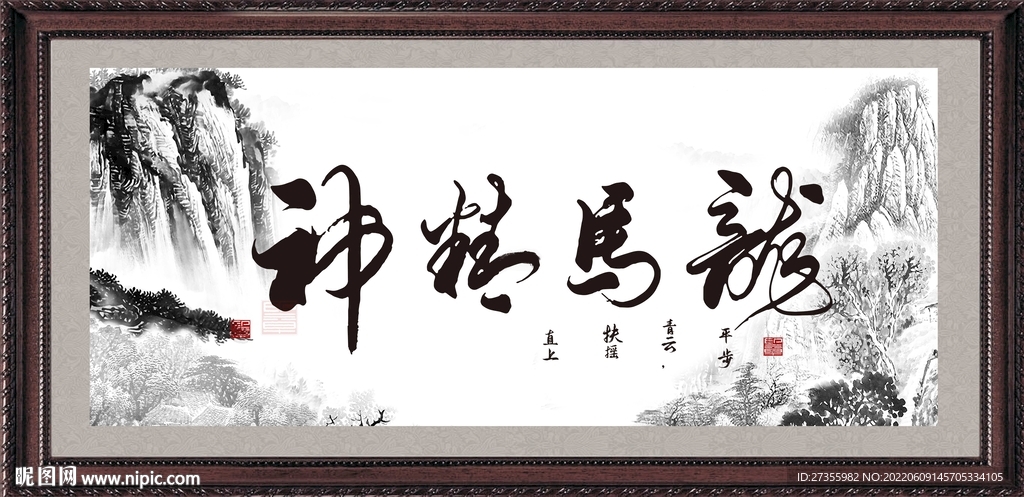 龍馬精神
平步
青云，
扶摇
直上
昵图网 www.nipic.com
ID:27355982 NO:20220609145705334105